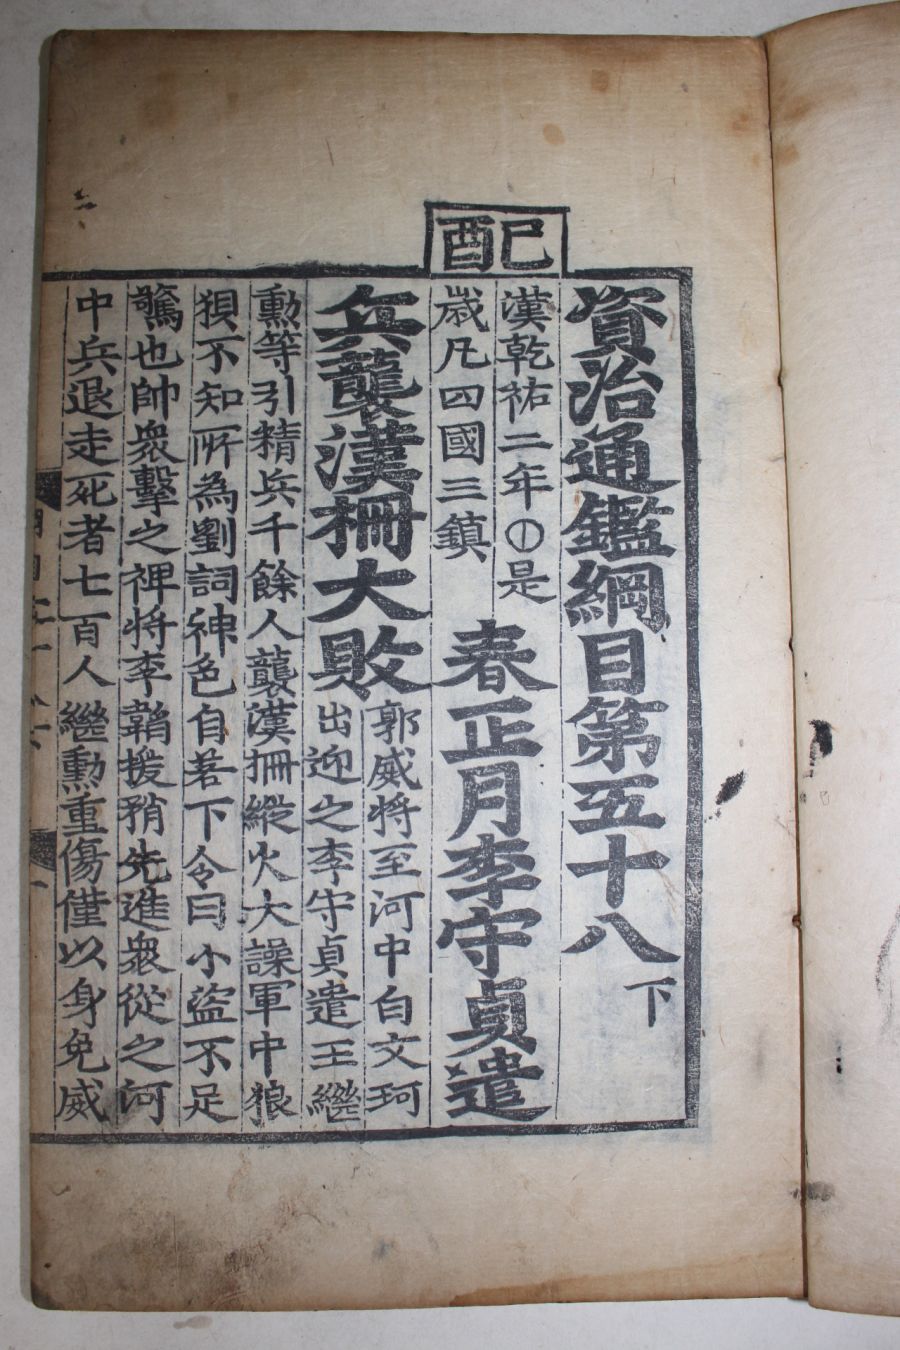 己酉
資治通鑑綱目第五十八下
漢乾祐二年①是
歲凡四國三鎮
春正月李守貞遣
兵襲漢柵大敗
郭威將至河中白文珂
出迎之李守貞遣王繼
勲等引精兵千餘人襲漢柵縱火大譟軍中狼
狽不知所為劉詞神色自若下令曰小盜不足
驚也帥衆擊之裨將李韜援矟先進衆從之河
中兵退走死者七百人繼勲重傷僅以身免威